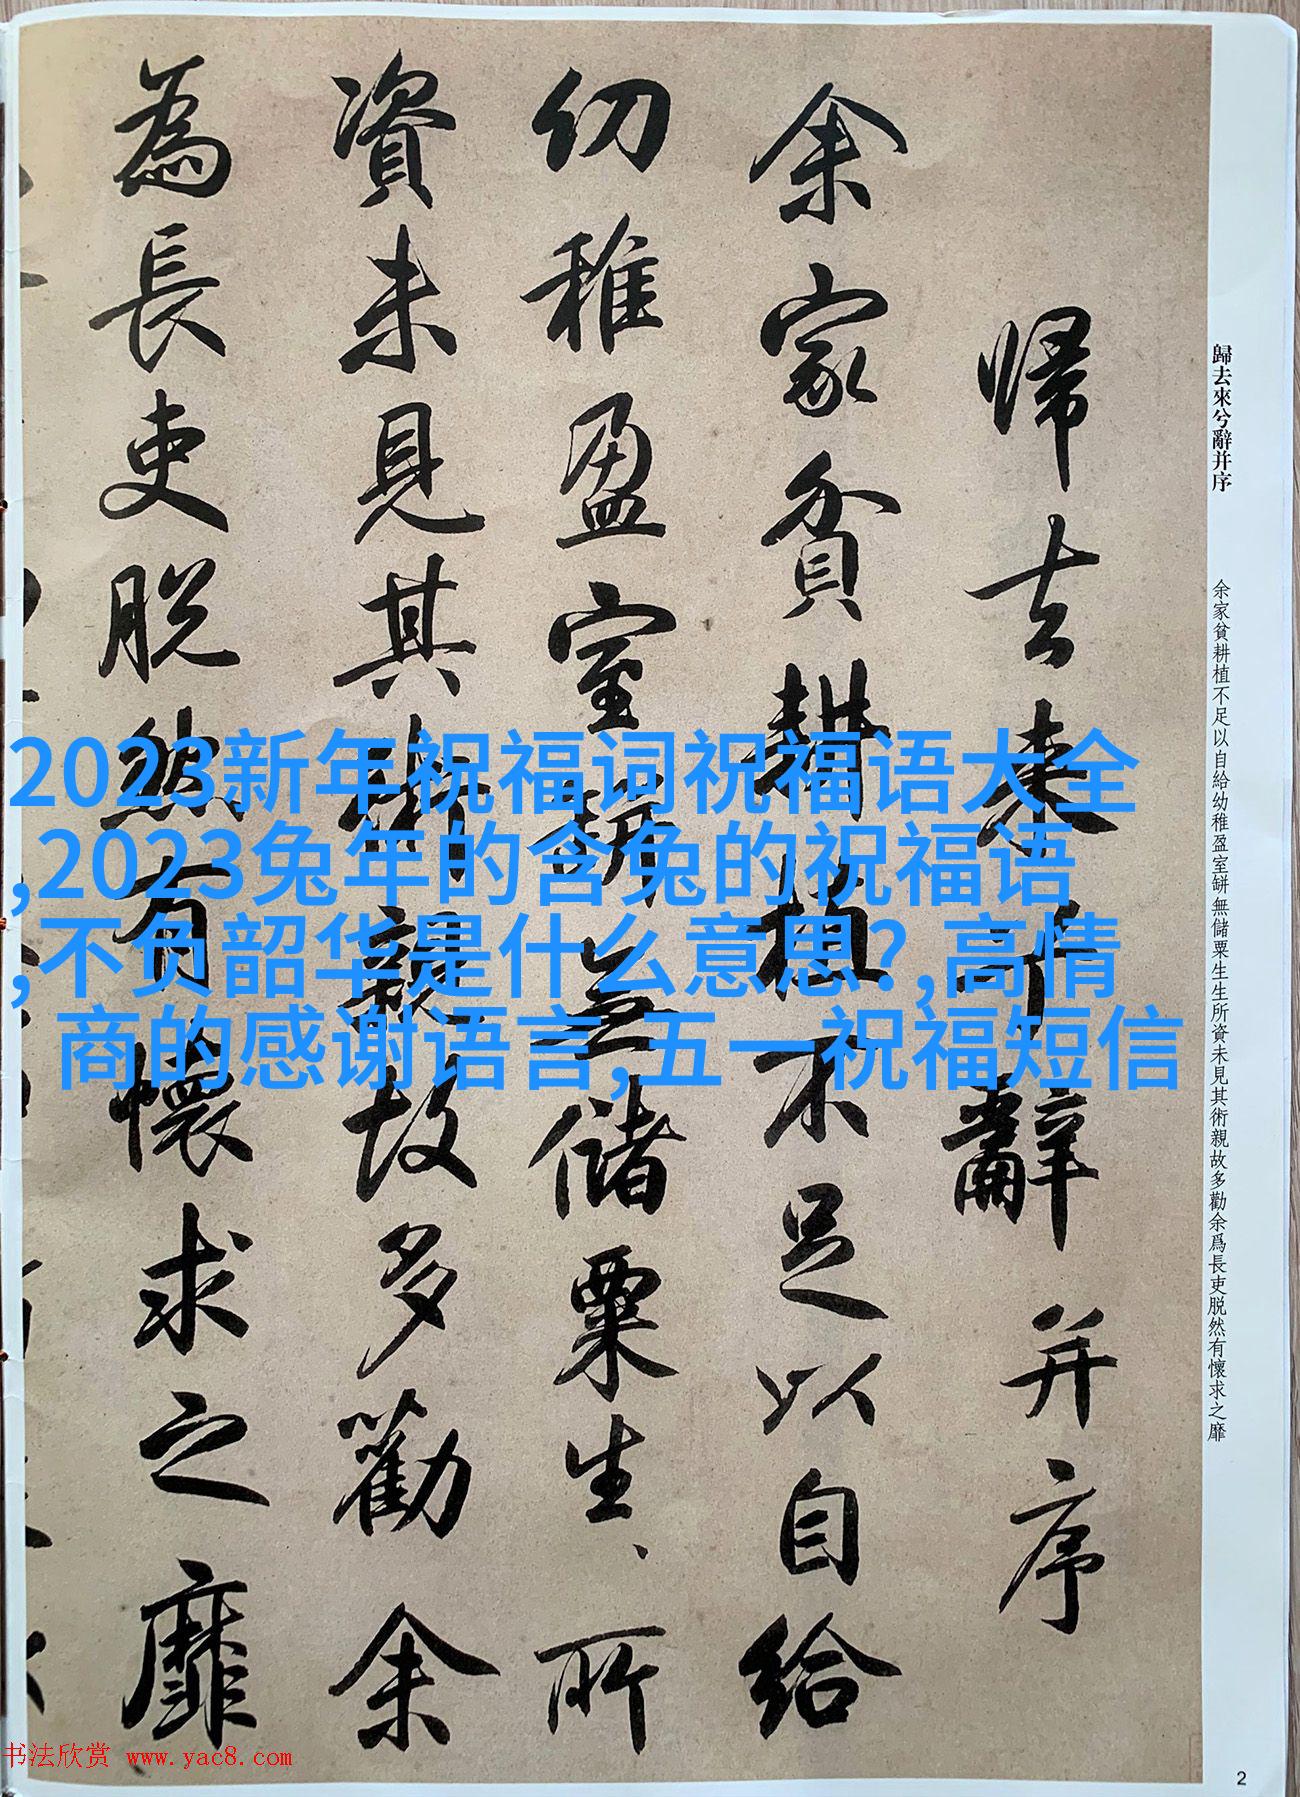 歸去來兮辭并序
余家貧耕植不足以自給幼稚盈室缾無儲粟生生所資未見其術親故多勸余爲長吏脱然有懷求之靡
歸去来兮辭并序
余家貧耕植不足以自給
幼稚盈室缾無儲粟生、所
資未見其術親故多勸余
為長吏脱然有懷求之靡
2023新年祝福词祝福语大全
,2023兔年的含兔的祝福语
,不负韶华是什么意思?,高情
商的感谢语言,五一祝福短信
书法欣赏 www.yac8.com
2